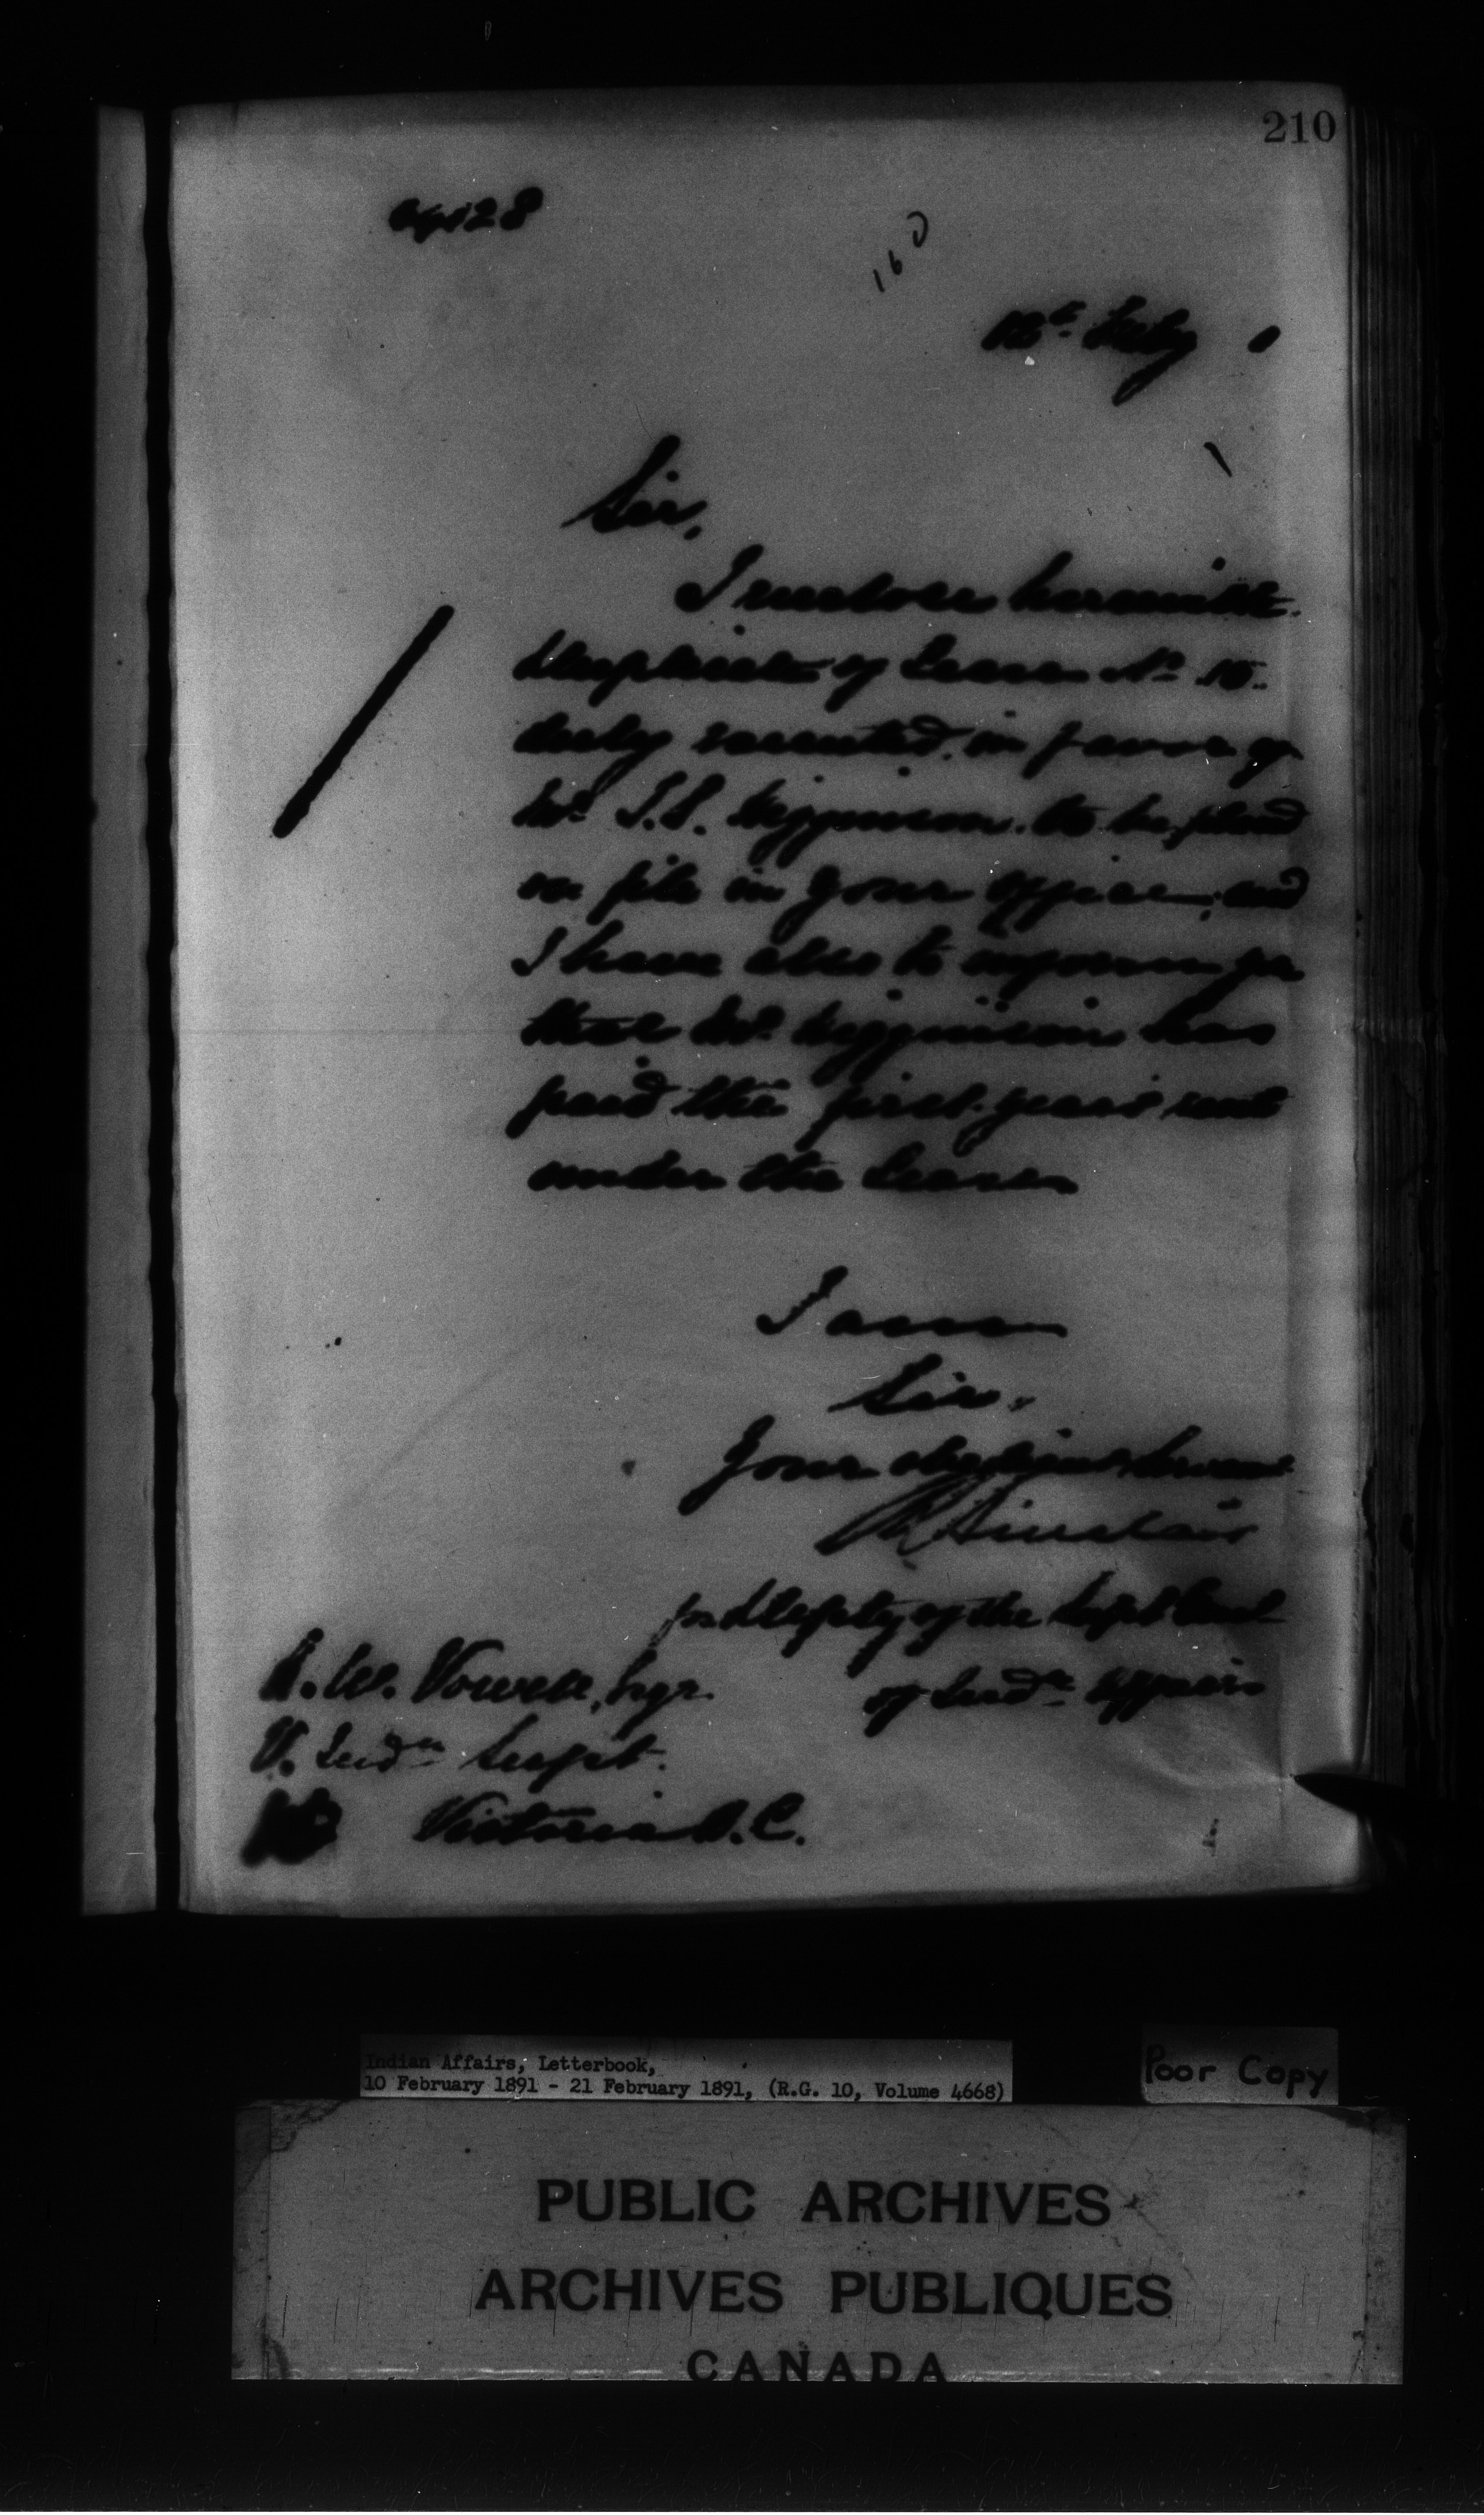 210
160
12th Feby 1
Sir,
I enclose herewith
duplicate of Lease No 10.
duly executed in favor of
Mr T.S. Higginson. to be placed
on file in your office; and
I have also to inform you
that Mr Higginson has
paid the first years rent
under the Lease
I am
Sir,
Your obedient Servant
R Sinclair
for Deputy of the Supt Genl
of Indn Affairs
A. W. Vowell, Esqr.
V. Indn Supt.
Victoria B.C.
Indian Affairs, Letterbook,
10 February 1891 - 21 February 1891, (R.G. 10, Volume 4668)
Poor Copy
PUBLIC ARCHIVES
ARCHIVES PUBLIQUES
CANADA